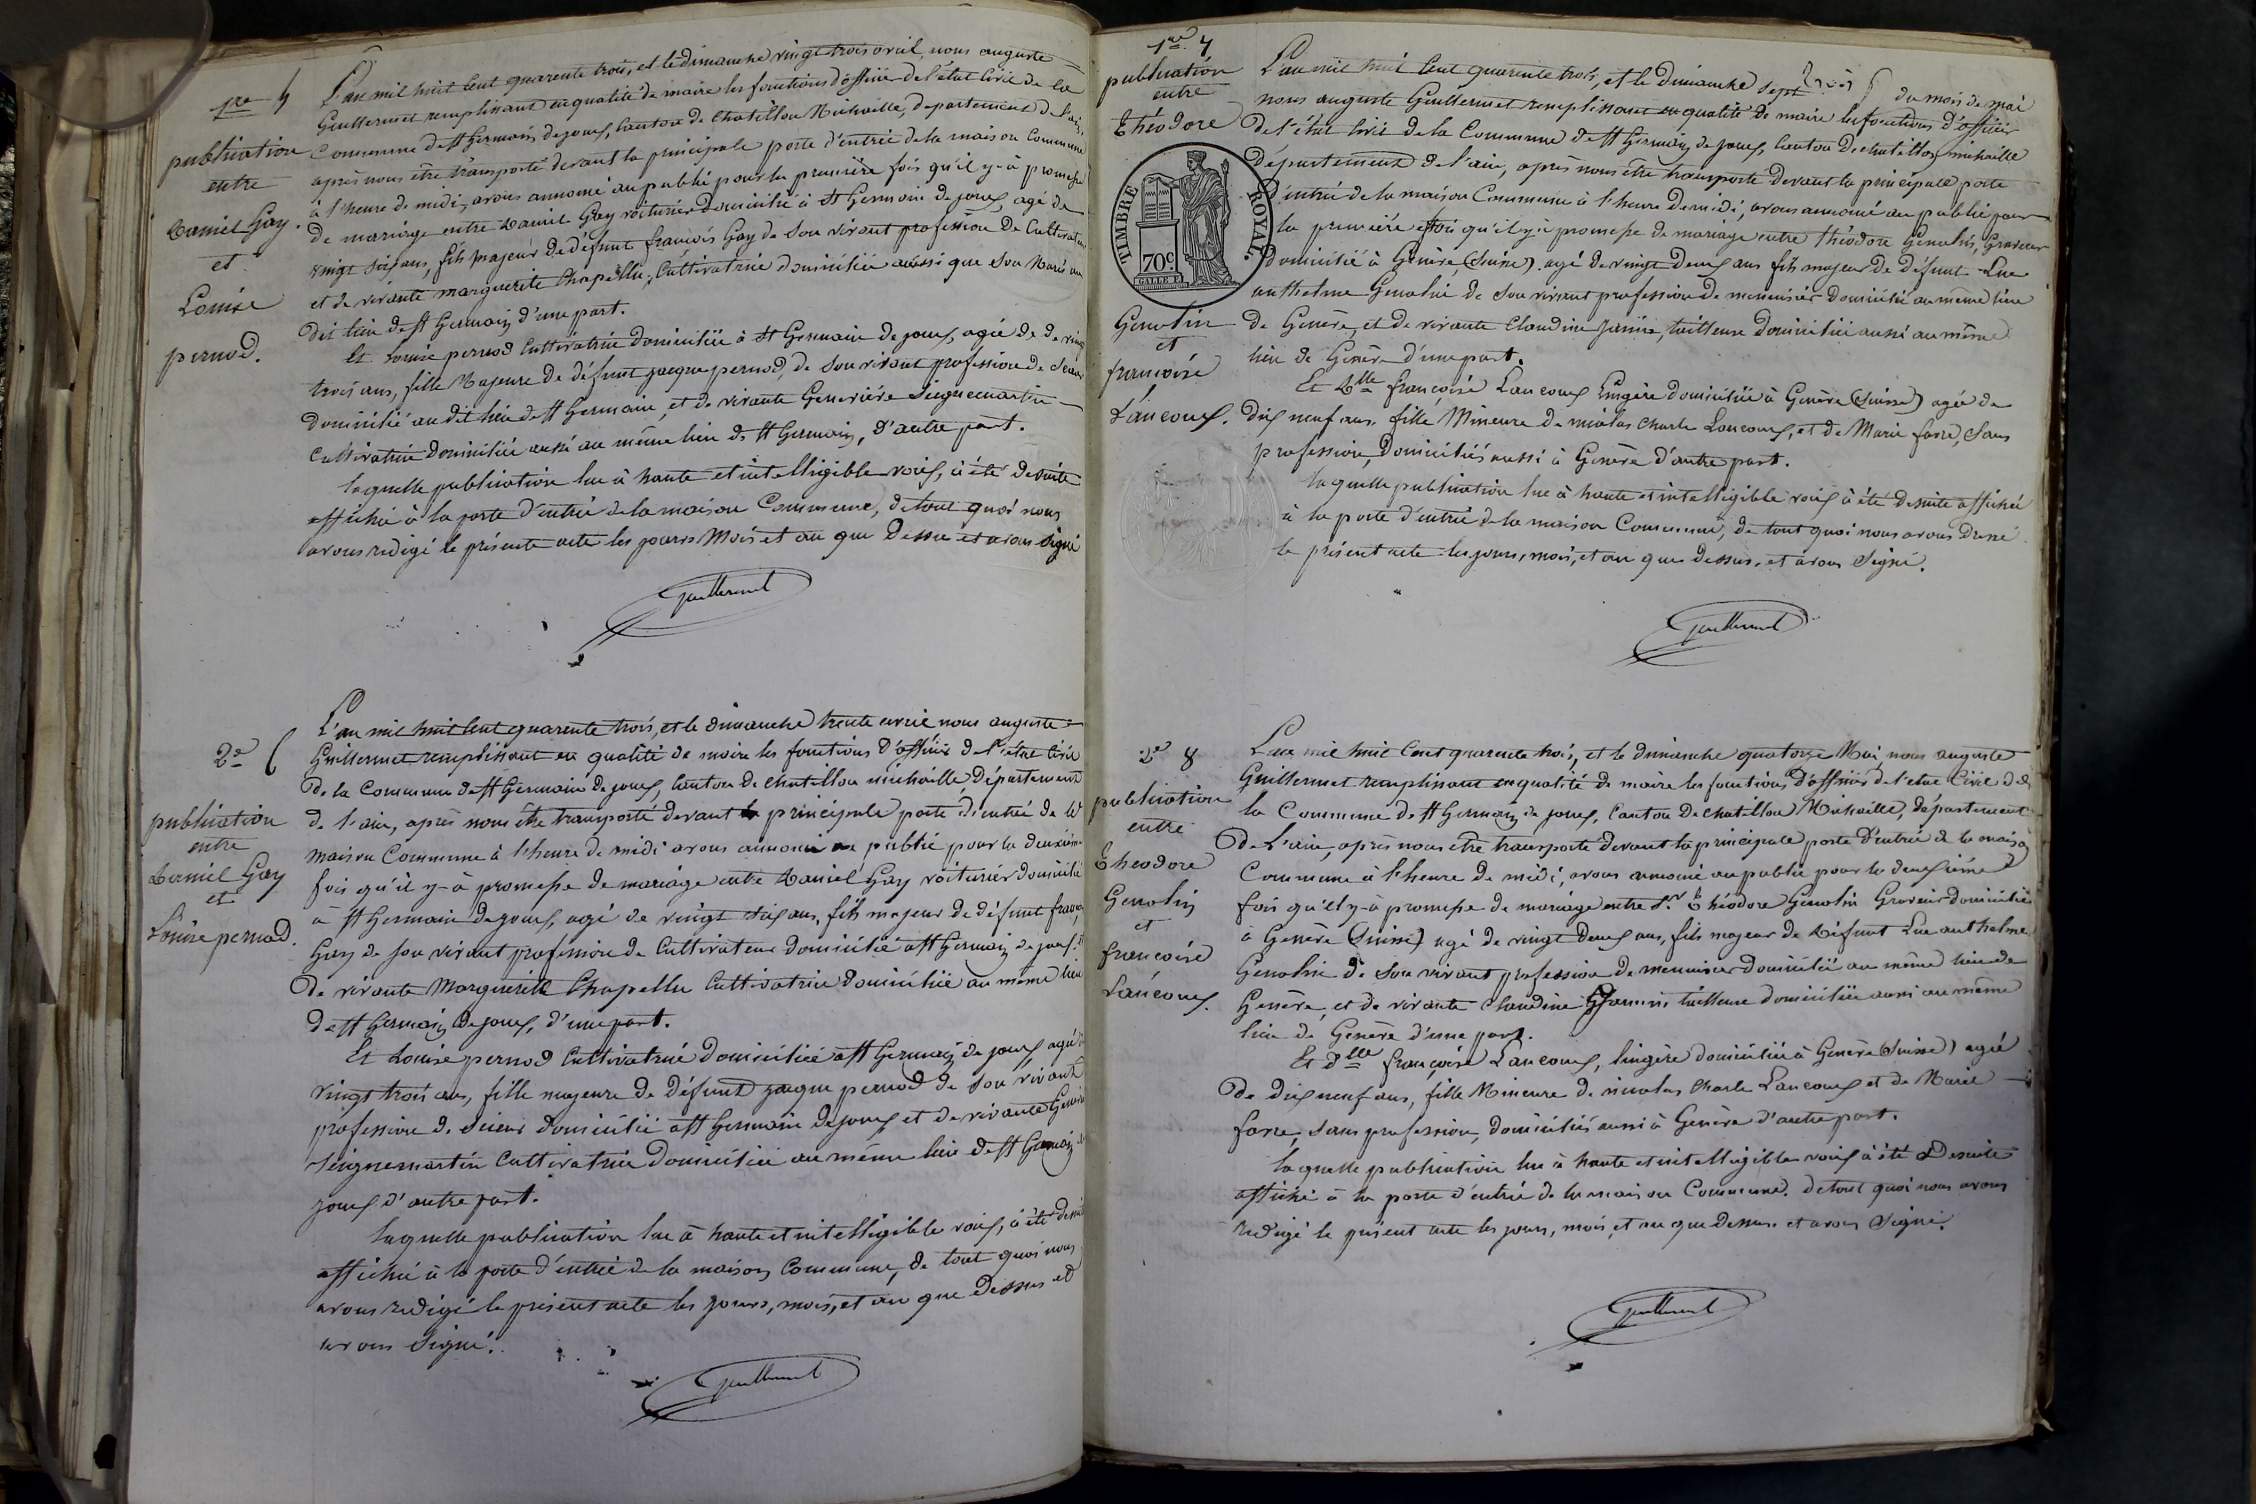 1re 5
publication
entre
Daniel Gay.
et
Louise
pernod.
L'an mil huit cent quarente trois, et le dimanche vingt trois avril, nous auguste
Guillermet remplissant en qualité de maire les fonctions d'officier de l'état Civil de la
Commune de St Germain de joux, Canton de Chatillon Michaille, departement de l'ain,
après nous être transporté devant la principale porte d'entrée de la maison Commune
à l'heure de midi, avons annoncé au public pour la première fois qu'il y-à promesse
de mariage entre Daniel Gay voiturier domicilié à St Germain de joux, agé de
vingt six ans, fils majeur de défunt françois Gay de son vivant profession de Cultivateur
et de vivante marguerite Chapellu, Cultivatrice domiciliée aussi que son Maris au
dit lieu de St Germain d'une part.
Et Louise pernod Cultivatrice domiciliée à St Germain de joux, agée de de vingt
trois ans, fille Majeure de défunt jacque pernod, de son vivant profession de Scieur
domicilié au dit lieu de St Germain, et de vivante Geneviève Seignemartin
Cultivatrice domiciliée aussi au même lieu de St Germain, d'autre part.
laquelle publication lue à haute et intelligible voix, à été desuite
affiché à la porte d'entrée de la maison Commune, de tout quoi nous
avons redigé le présente acte les jours Mois et an que Dessus et avons signé
Guillermet
2e 6
publication
entre
Daniel Gay
et
Louise pernod.
L'an mil huit cent quarente trois, et le dimanche trente avril nous auguste
Guillermet remplissant en qualité de maire les fonctions d'officier de l'état Civil
de la Commune de St Germain de joux, Canton de Chatillon michaille, département
de l'ain, après nous être transporté devant la principale porte d'entrée de la
maison Commune à l'heure de midi avons annoncé au public pour la deuxième
fois qu'il y-à promesse de mariage entre Daniel Gay voiturier domicilié
à St Germain de joux, agé de vingt six ans, fils majeur de défunt françois
Gay de son vivant profession de Cultivateur domicilié à St Germain de joux, et
de vivante Marguerite Chapellu Cultivatrice domiciliée au même lieu
de St Germain de joux, d'une part.
Et Louise pernod Cultivatrice domiciliée à St Germain de joux agée de
vingt trois ans, fille majeure de défunt jacque pernod de son vivant
profession de Scieur domicilié à St Germain de joux et de vivante Geneviève
Seignemartin Cultivatrice domiciliée au même lieu de St Germain de
joux d'autre part.
laquelle publication lue à haute et intelligible voix, à été desuite
affiché à la porte d'entrée de la maison Commune, de tout quoi nous
avons redigé le présent acte les jours, mois, et an que Dessus et
avons signé.
Guillermet
1re 7
publication
entre
théodore
TIMBRE ROYAL.
70c.
Genolin
et
françoise
Lancoux.
L'an mil huit cent quarente trois, et le dimanche sept du mois de mai
nous auguste Guillermet remplissant en qualité de maire les fonctions d'officier
de l'état Civil de la Commune de St Germain de joux, Canton de chatillon michaille
département de l'ain, après nous être transporté devant la principale porte
d'entrée de la maison Commune à l'heure de midi, avons annoncé au public pour
la première fois qu'il y-à promesse de mariage entre théodore Genolin, Graveur
domicilié à Genève (Suisse) agé de vingt deux ans fils majeur de défunt Luc
anthelme Genolin de son vivant profession de menuisier domicilié au même lieu
de Genève, et de vivante Claudine Jannin, tailleuse domiciliée aussi au même
lieu de Genève d'une part.
Et Dlle françoise Lancoux Lingère domiciliée à Genève (Suisse) agée de
dix neuf ans fille Mineure de nicolas charle Lancoux, et de Marie favre, Sans
profession, Domiciliés aussi à Genève d'autre part.
laquelle publication lue à haute et intelligible voix à été desuite affiché
à la porte d'entrée de la maison Commune, de tout quoi nous avons Dressé
le présent acte les jours, mois, et an que dessus. et avons signé.
Guillermet
2e 8
publication
entre
théodore
Genolin
et
françoise
Lancoux.
L'an mil huit cent quarente trois, et le dimanche quatorze Mai nous auguste
Guillermet remplissant en qualité de maire les fonctions d'officier de l'état Civil de
la Commune de St Germain de joux, Canton de Chatillon Michaille, département
de l'ain, après nous être transporté devant la principale porte d'entrée de la maison
Commune à l'heure de midi, avons annoncé au public pour la deuxième
fois qu'il y-à promesse de mariage entre Sr théodore Genolin Graveur domicilié
à Genève (Suisse) agé de vingt deux ans, fils majeur de défunt Luc anthelme
Genolin de son vivant profession de menuisier domicilié au même lieu de
Genève, et de vivante Claudine Jannin tailleuse domiciliée aussi au même
lieu de Genève d'une part.
Et Dlle françoise Lancoux, lingère domiciliée à Genève (Suisse) agée
de dix neuf ans, fille Mineure de nicolas charle Lancoux et de Marie
favre, sans profession, domiciliés aussi à Genève d'autre part.
laquelle publication lue à haute et intelligible voix à été Desuite
affiché à la porte d'entrée de la maison Commune. de tout quoi nous avons
redigé le présent acte les jours, mois, et an que dessus. et avons signé.
Guillermet